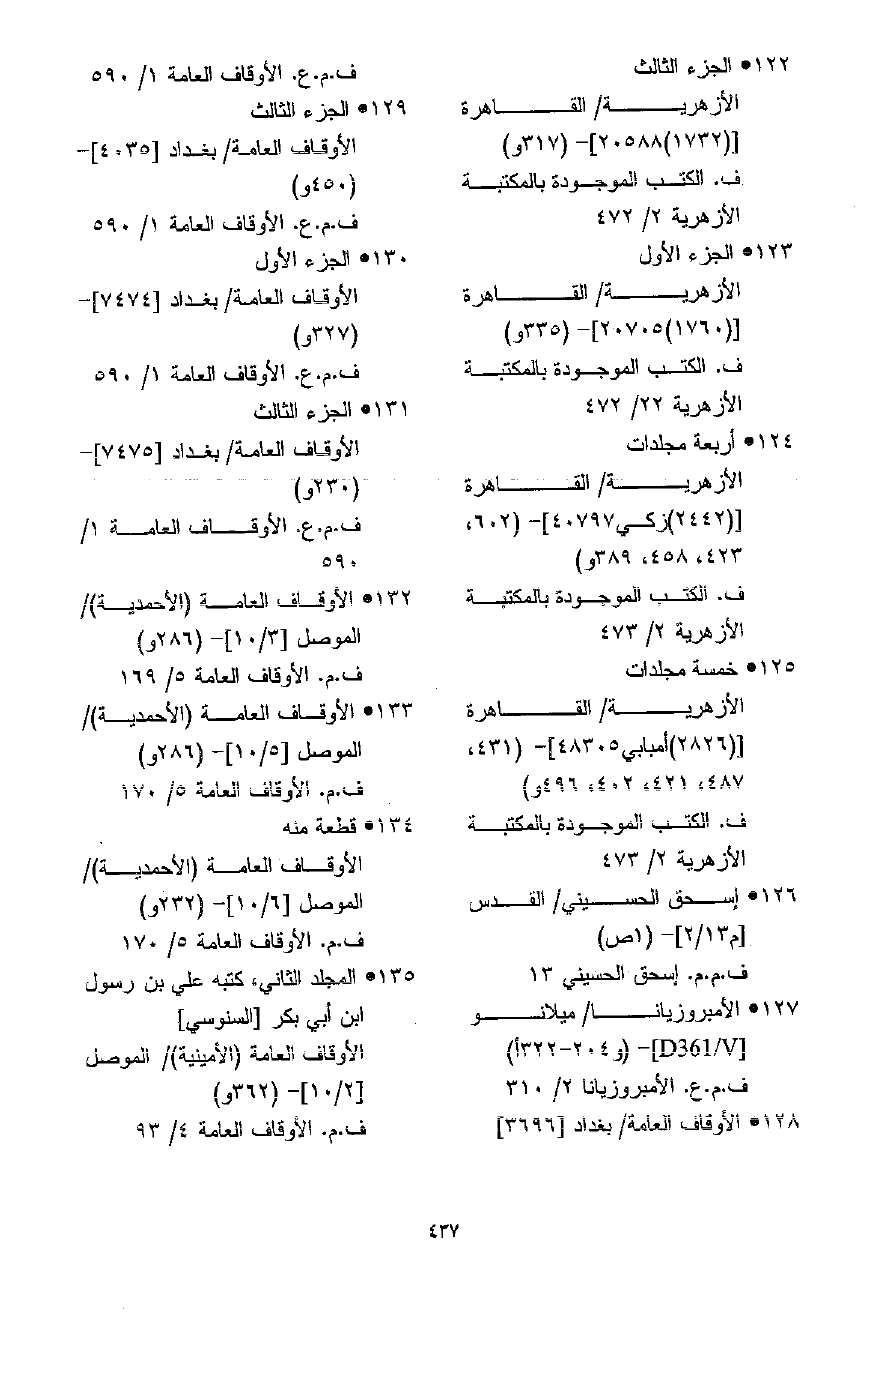 ١٢٢• الجزء الثالث
الأزهرية/ القاهرة
[(١٧٣٢)٢٠٥٨٨]- (٣١٧و)
ف. الكتب الموجودة بالمكتبة
الأزهرية ٢/ ٤٧٢
١٢٣• الجزء الأول
الأزهرية/ القاهرة
[(١٧٦٠)٢٠٧٠٥]- (٣٣٥و)
ف. الكتب الموجودة بالمكتبة
الأزهرية ٢٢/ ٤٧٢
١٢٤• أربعة مجلدات
الأزهرية/ القاهرة
[(٢٤٤٢)زكي٤٠٧٩٧]- (٦٠٢،
٤٢٣، ٤٥٨، ٣٨٩و)
ف. الكتب الموجودة بالمكتبة
الأزهرية ٢/ ٤٧٣
١٢٥• خمسة مجلدات
الأزهرية/ القاهرة
[(٢٨٢٦)أمبابي٤٨٣٠٥]- (٤٣١،
٤٨٧، ٤٢١، ٤٠٢، ٤٩٦و)
ف. الكتب الموجودة بالمكتبة
الأزهرية ٢/ ٤٧٣
١٢٦• إسحق الحسيني/ القدس
[م٢/١٣]- (١ص)
ف.م.م. إسحق الحسيني ١٣
١٢٧• الأمبروزيانا/ ميلانو
[D361/V]- (و٢٠٤-٣٢٢أ)
ف.م.ع. الأمبروزيانا ٢/ ٣١٠
١٢٨• الأوقاف العامة/ بغداد [٣٦٩٦]
ف.م.ع. الأوقاف العامة ١/ ٥٩٠
١٢٩• الجزء الثالث
الأوقاف العامة/ بغداد [٤٠٣٥]-
(٤٥٠و)
ف.م.ع. الأوقاف العامة ١/ ٥٩٠
١٣٠• الجزء الأول
الأوقاف العامة/ بغداد [٧٤٧٤]-
(٣٢٧و)
ف.م.ع. الأوقاف العامة ١/ ٥٩٠
١٣١• الجزء الثالث
الأوقاف العامة/ بغداد [٧٤٧٥]-
(٢٣٠و)
ف.م.ع. الأوقاف العامة ١/
٥٩٠
١٣٢• الأوقاف العامة (الأحمدية)/
الموصل [١٠/٣]- (٢٨٦و)
ف.م. الأوقاف العامة ٥/ ١٦٩
١٣٣• الأوقاف العامة (الأحمدية)/
الموصل [١٠/٥]- (٢٨٦و)
ف.م. الأوقاف العامة ٥/ ١٧٠
١٣٤• قطعة منه
الأوقاف العامة (الأحمدية)/
الموصل [١٠/٦]- (٢٣٢و)
ف.م. الأوقاف العامة ٥/ ١٧٠
١٣٥• المجلد الثاني، كتبه علي بن رسول
ابن أبي بكر [السنوسي]
الأوقاف العامة (الأمينية)/ الموصل
[١٠/٢]- (٣٦٢و)
ف.م. الأوقاف العامة ٤/ ٩٣
٤٣٧